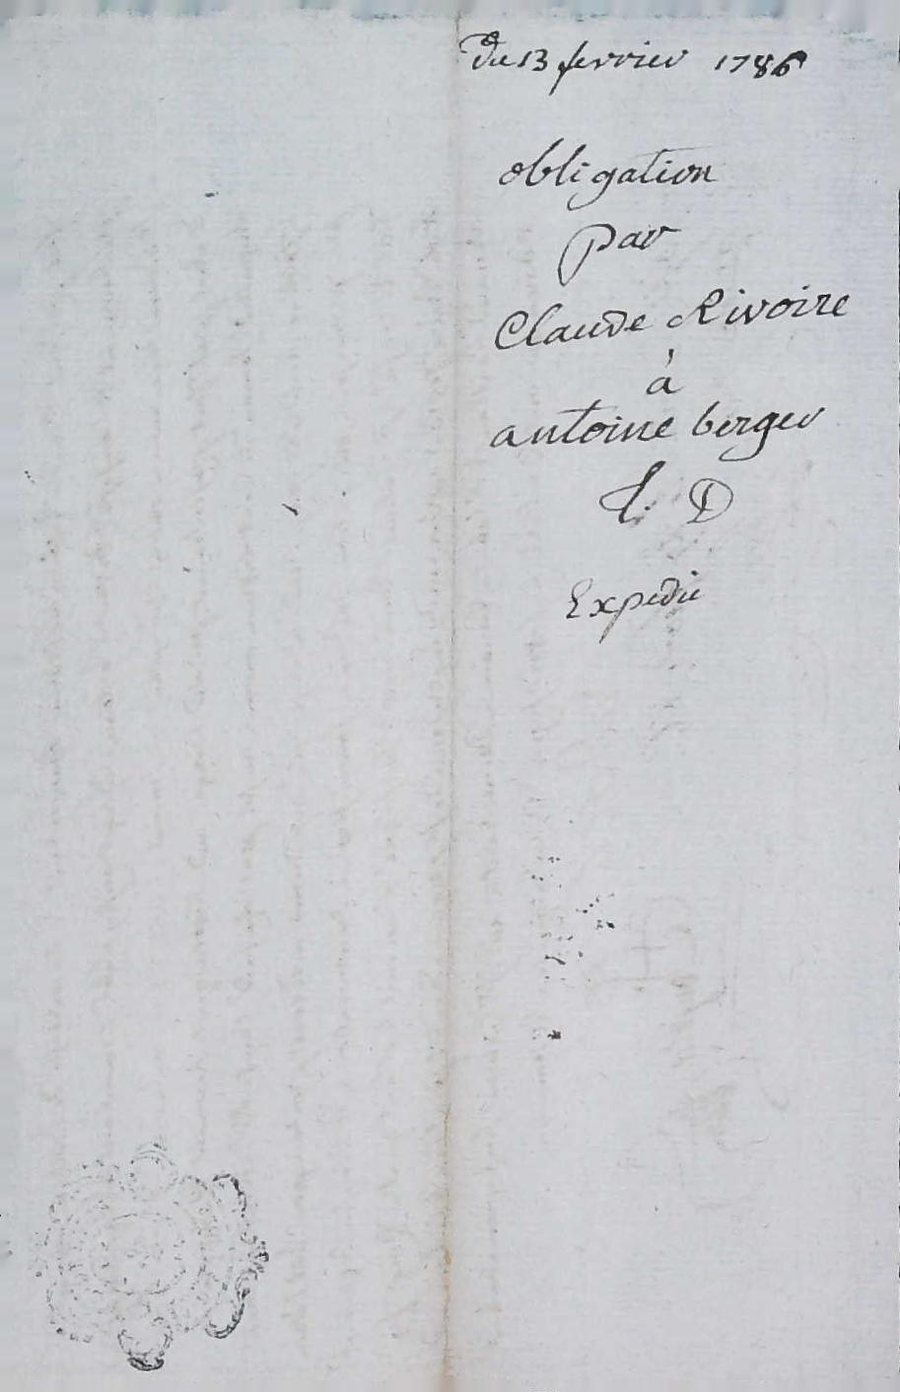 Du 13 fevrier 1786
obligation
par
Claude Rivoire
à
antoine berger
D
Expedié